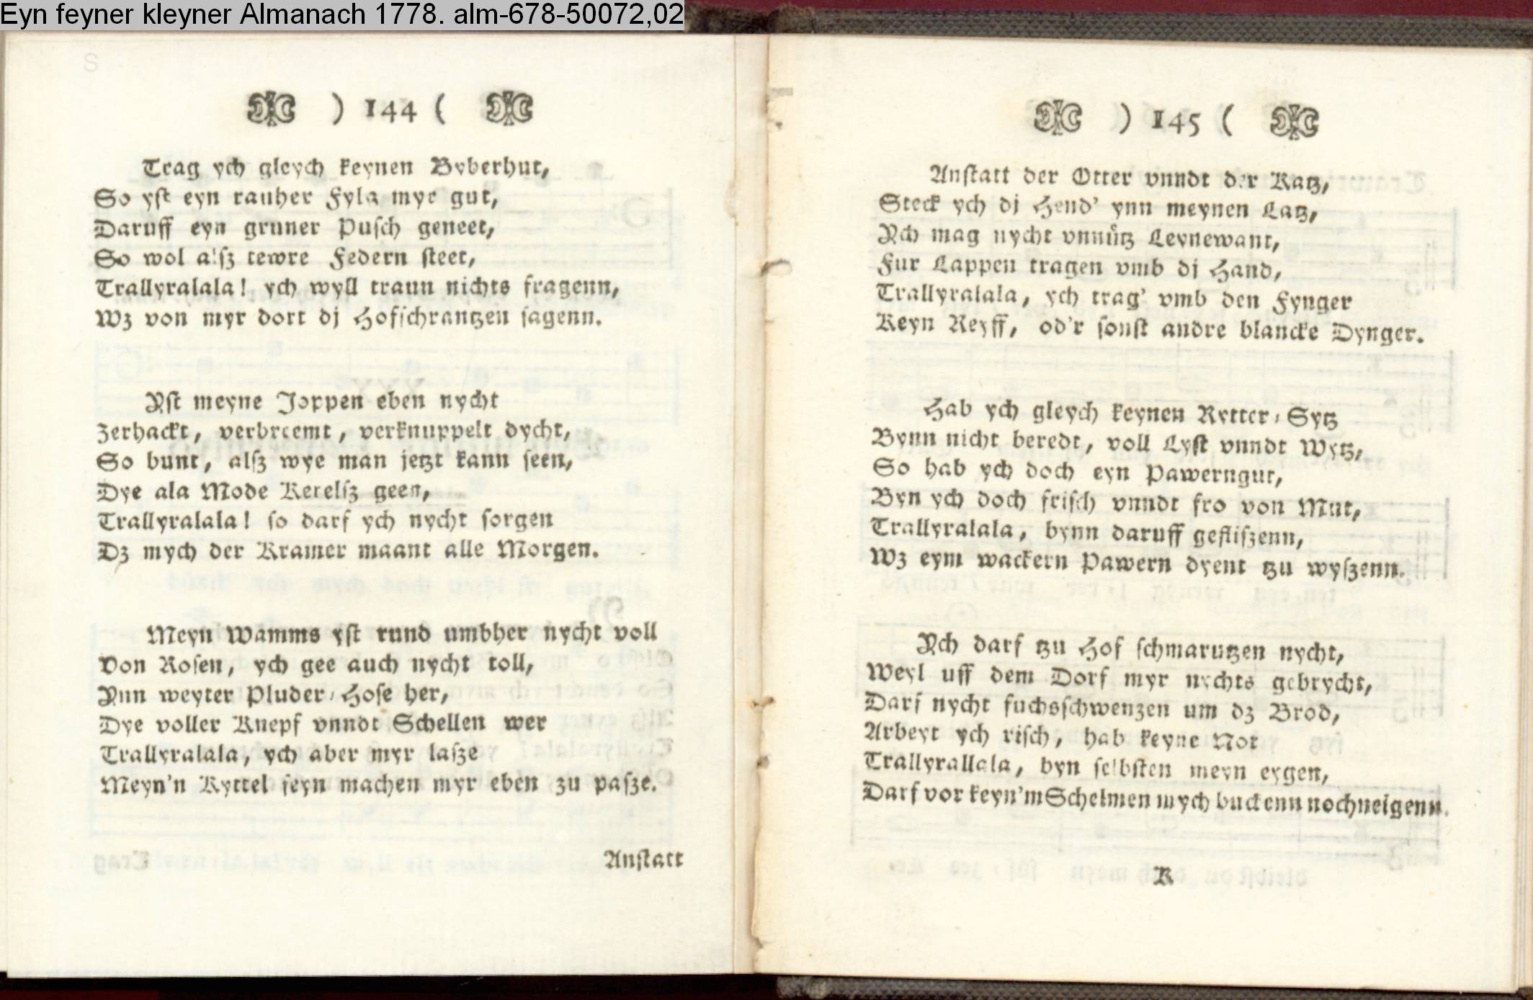 Eyn feyner kleyner Almanach 1778. alm-678-50072,02
) 144 (
Trag ych gleych keynen Byberhut,
So yst eyn rauher Fylz myr gut,
Daruff eyn gruner Pusch geneet,
So wol alsz tewre Federn steet,
Trallyralala! ych wyll traun nichts fragenn,
Wz von myr dort dj Hofschrantzen sagenn.
Yst meyne Joppen eben nycht
Zerhackt, verbreemt, verknuppelt dycht,
So bunt, alsz wye man jetzt kann seen,
Dye ala Mode Kerelsz geen,
Trallyralala! so darf ych nycht sorgen
Dz mych der Kramer maant alle Morgen.
Meyn Wamms yst rund umbher nycht voll
Von Rosen, ych gee auch nycht toll,
Ynn weyter Pluder-Hose her,
Dye voller Knepf vnndt Schellen wer
Trallyralala, ych aber myr lasze
Meyn'n Kyttel feyn machen myr eben zu pasze.
Anstatt
) 145 (
Anstatt der Otter vnndt der Katz,
Steck ych dj Hend' ynn meynen Latz,
Ych mag nycht vnnütz Leynewant,
Fur Lappen tragen vmb dj Hand,
Trallyralala, ych trag' vmb den Fynger
Keyn Reyff, od'r sonst andre blancke Dynger.
Hab ych gleych keynen Rytter-Sytz
Bynn nicht beredt, voll Lyst vnndt Wytz,
So hab ych doch eyn Pawerngut,
Byn ych doch frisch vnndt fro von Mut,
Trallyralala, bynn daruff gefliszenn,
Wz eym wackern Pawern dyent tzu wyszenn.
Ych darf tzu Hof schmarutzen nycht,
Weyl uff dem Dorf myr nychts gebrycht,
Darf nycht fuchsschwenzen um dz Brod,
Arbeyt ych risch, hab keyne Not
Trallyrallala, byn selbsten meyn eygen,
Darf vor keyn'm Schelmen mych buckenn noch neigenn.
K